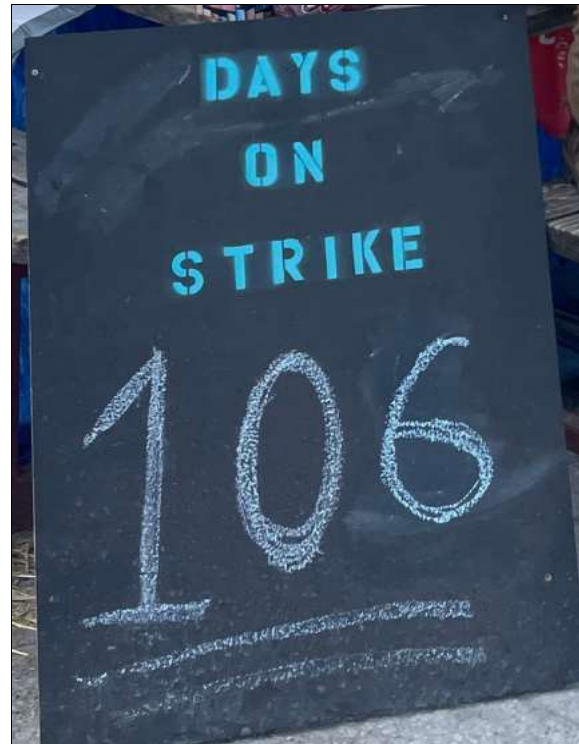 DAYS
ON
STRIKE
106